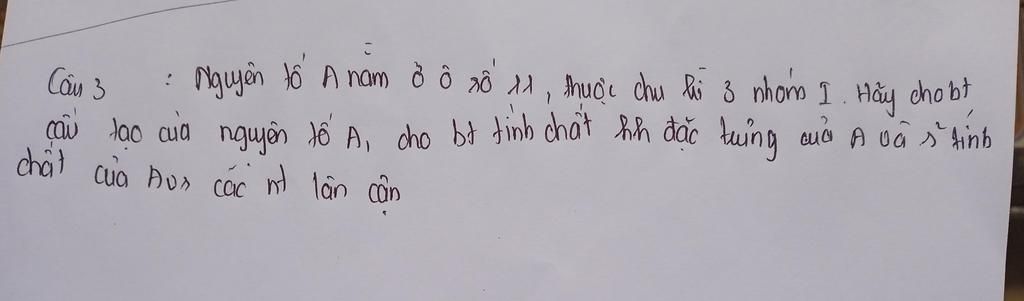 Câu 3 : Nguyên tố A nằm ở ô số 11, thuộc chu kì 3 nhóm I. Hãy cho bt
cấu tạo của nguyên tố A, cho bt tính chất hh đặc trưng của A và s² tính
chất của A vs các nt lân cận